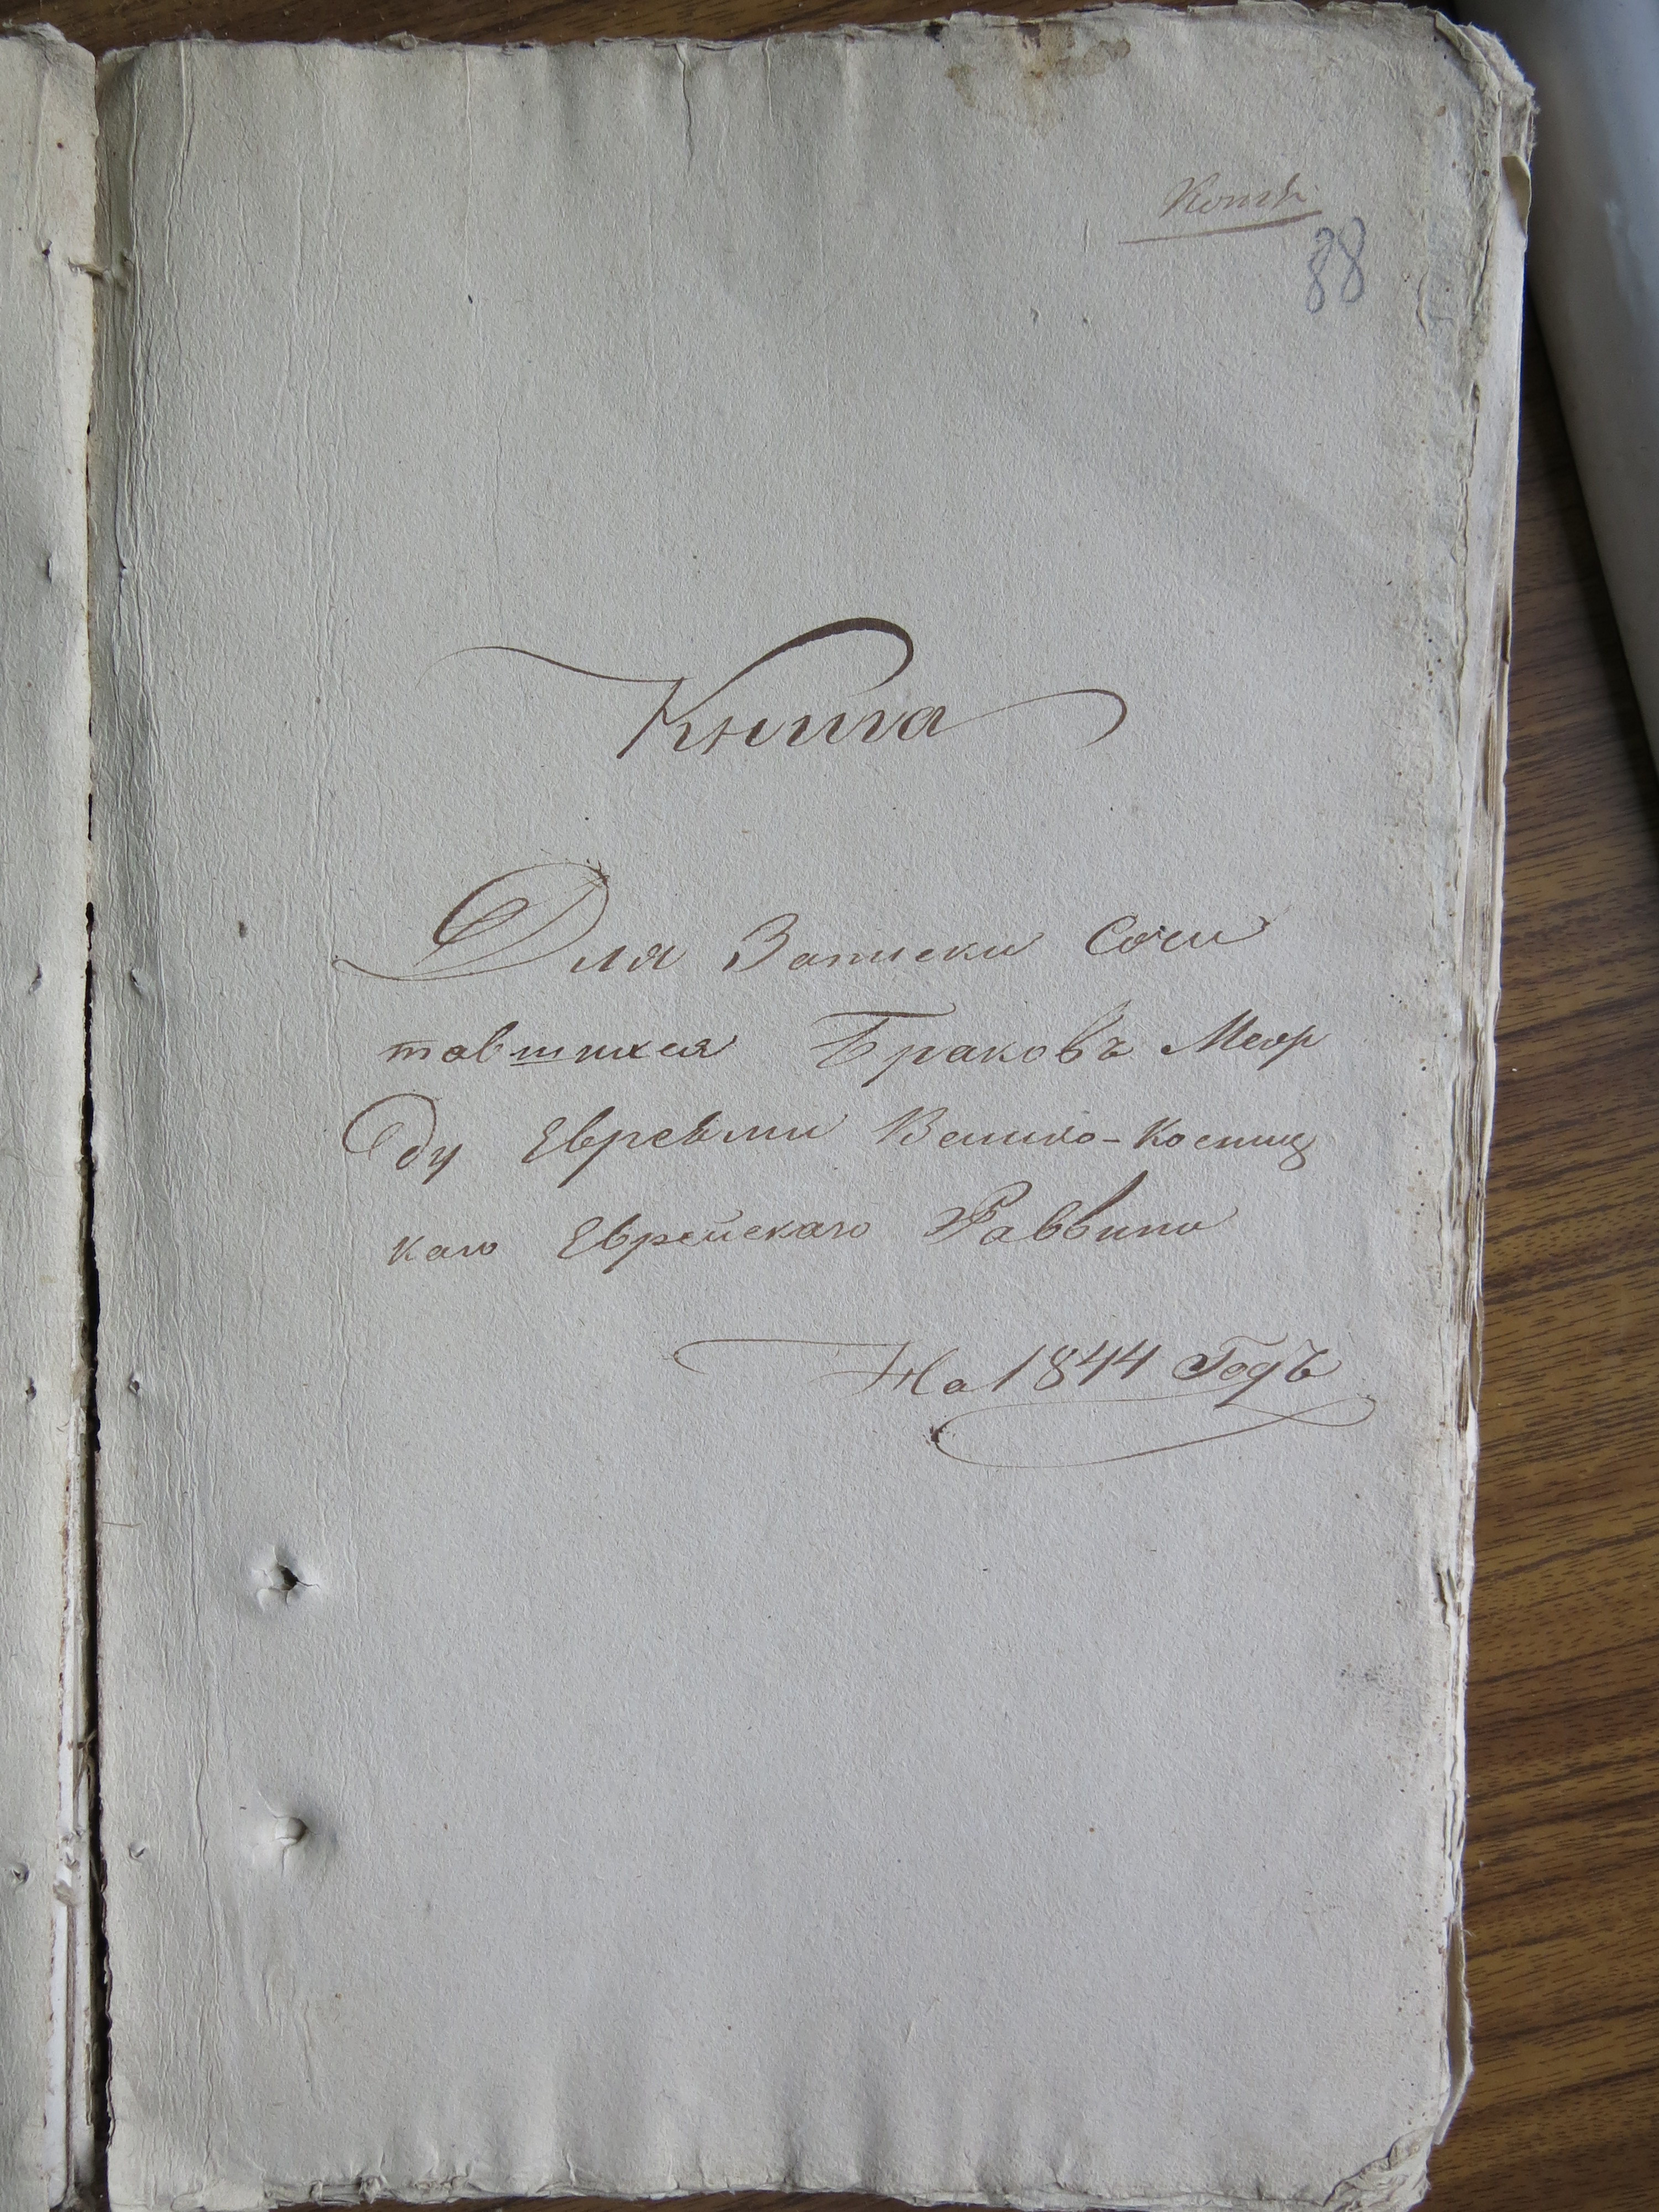 Копія
88
Книга
Для Записки Сочи
тавшихся Браковъ Меж
ду Евреями Велико-Костиц
каго Еврейскаго Раввина
На 1844 Годъ